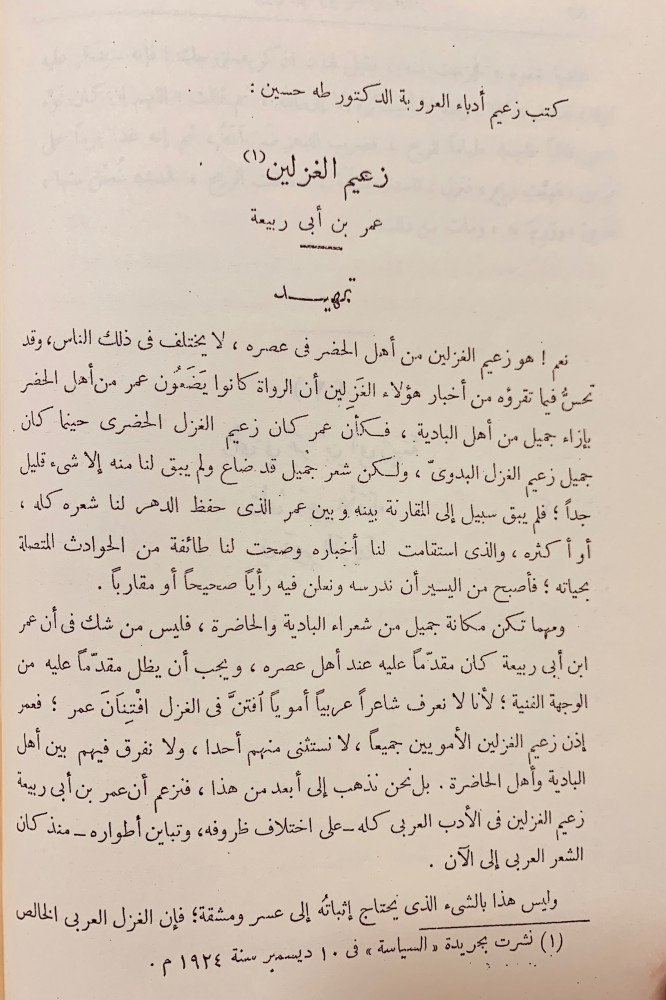 كتب زعيم أدباء العروبة الدكتور طه حسين :
زعيم الغزلين (١)
عمر بن أبى ربيعة
تمهيــــد
نعم ! هو زعيم الغزلين من أهل الحضر فى عصره ، لا يختلف فى ذلك الناس ، وقد
تحسُّ فيما تقرؤه من أخبار هؤلاء الغَزِلين أن الرواة كانوا يَضَعُون عمر من أهل الحضر
بإزاء جميل من أهل البادية ، فكأن عمر كان زعيم الغزل الحضرى حينما كان
جميل زعيم الغزل البدوىّ ، ولكن شعر جميل قد ضاع ولم يبق لنا منه إلا شىء قليل
جداً ؛ فلم يبق سبيل إلى المقارنة بينه وبين عمر الذى حفظ الدهر لنا شعره كله ،
أو أكثره ، والذى استقامت لنا أخباره وصحت لنا طائفة من الحوادث المتصلة
بحياته ؛ فأصبح من اليسير أن ندرسه ونعلن فيه رأياً صحيحاً أو مقارباً .
ومهما تكن مكانة جميل من شعراء البادية والحاضرة ، فليس من شك فى أن عمر
ابن أبى ربيعة كان مقدّماً عليه عند أهل عصره ، ويجب أن يظل مقدّماً عليه من
الوجهة الفنية ؛ لأنا لا نعرف شاعراً عربياً أموياً افتنَّ فى الغزل افْتِنَانَ عمر ؛ فعمر
إذن زعيم الغزلين الأمويين جميعاً ، لا نستثنى منهم أحدا ، ولا نفرق فيهم بين أهل
البادية وأهل الحاضرة . بل نحن نذهب إلى أبعد من هذا ، فنزعم أن عمر بن أبى ربيعة
زعيم الغزلين فى الأدب العربى كله ــ على اختلاف ظروفه، وتباين أطواره ــ منذ كان
الشعر العربى إلى الآن .
وليس هذا بالشىء الذى يحتاج إثباتُه إلى عسر ومشقة؛ فإن الغزل العربى الخالص
(١) نشرت بجريدة «السياسة» فى ١٠ ديسمبر سنة ١٩٢٤ م .